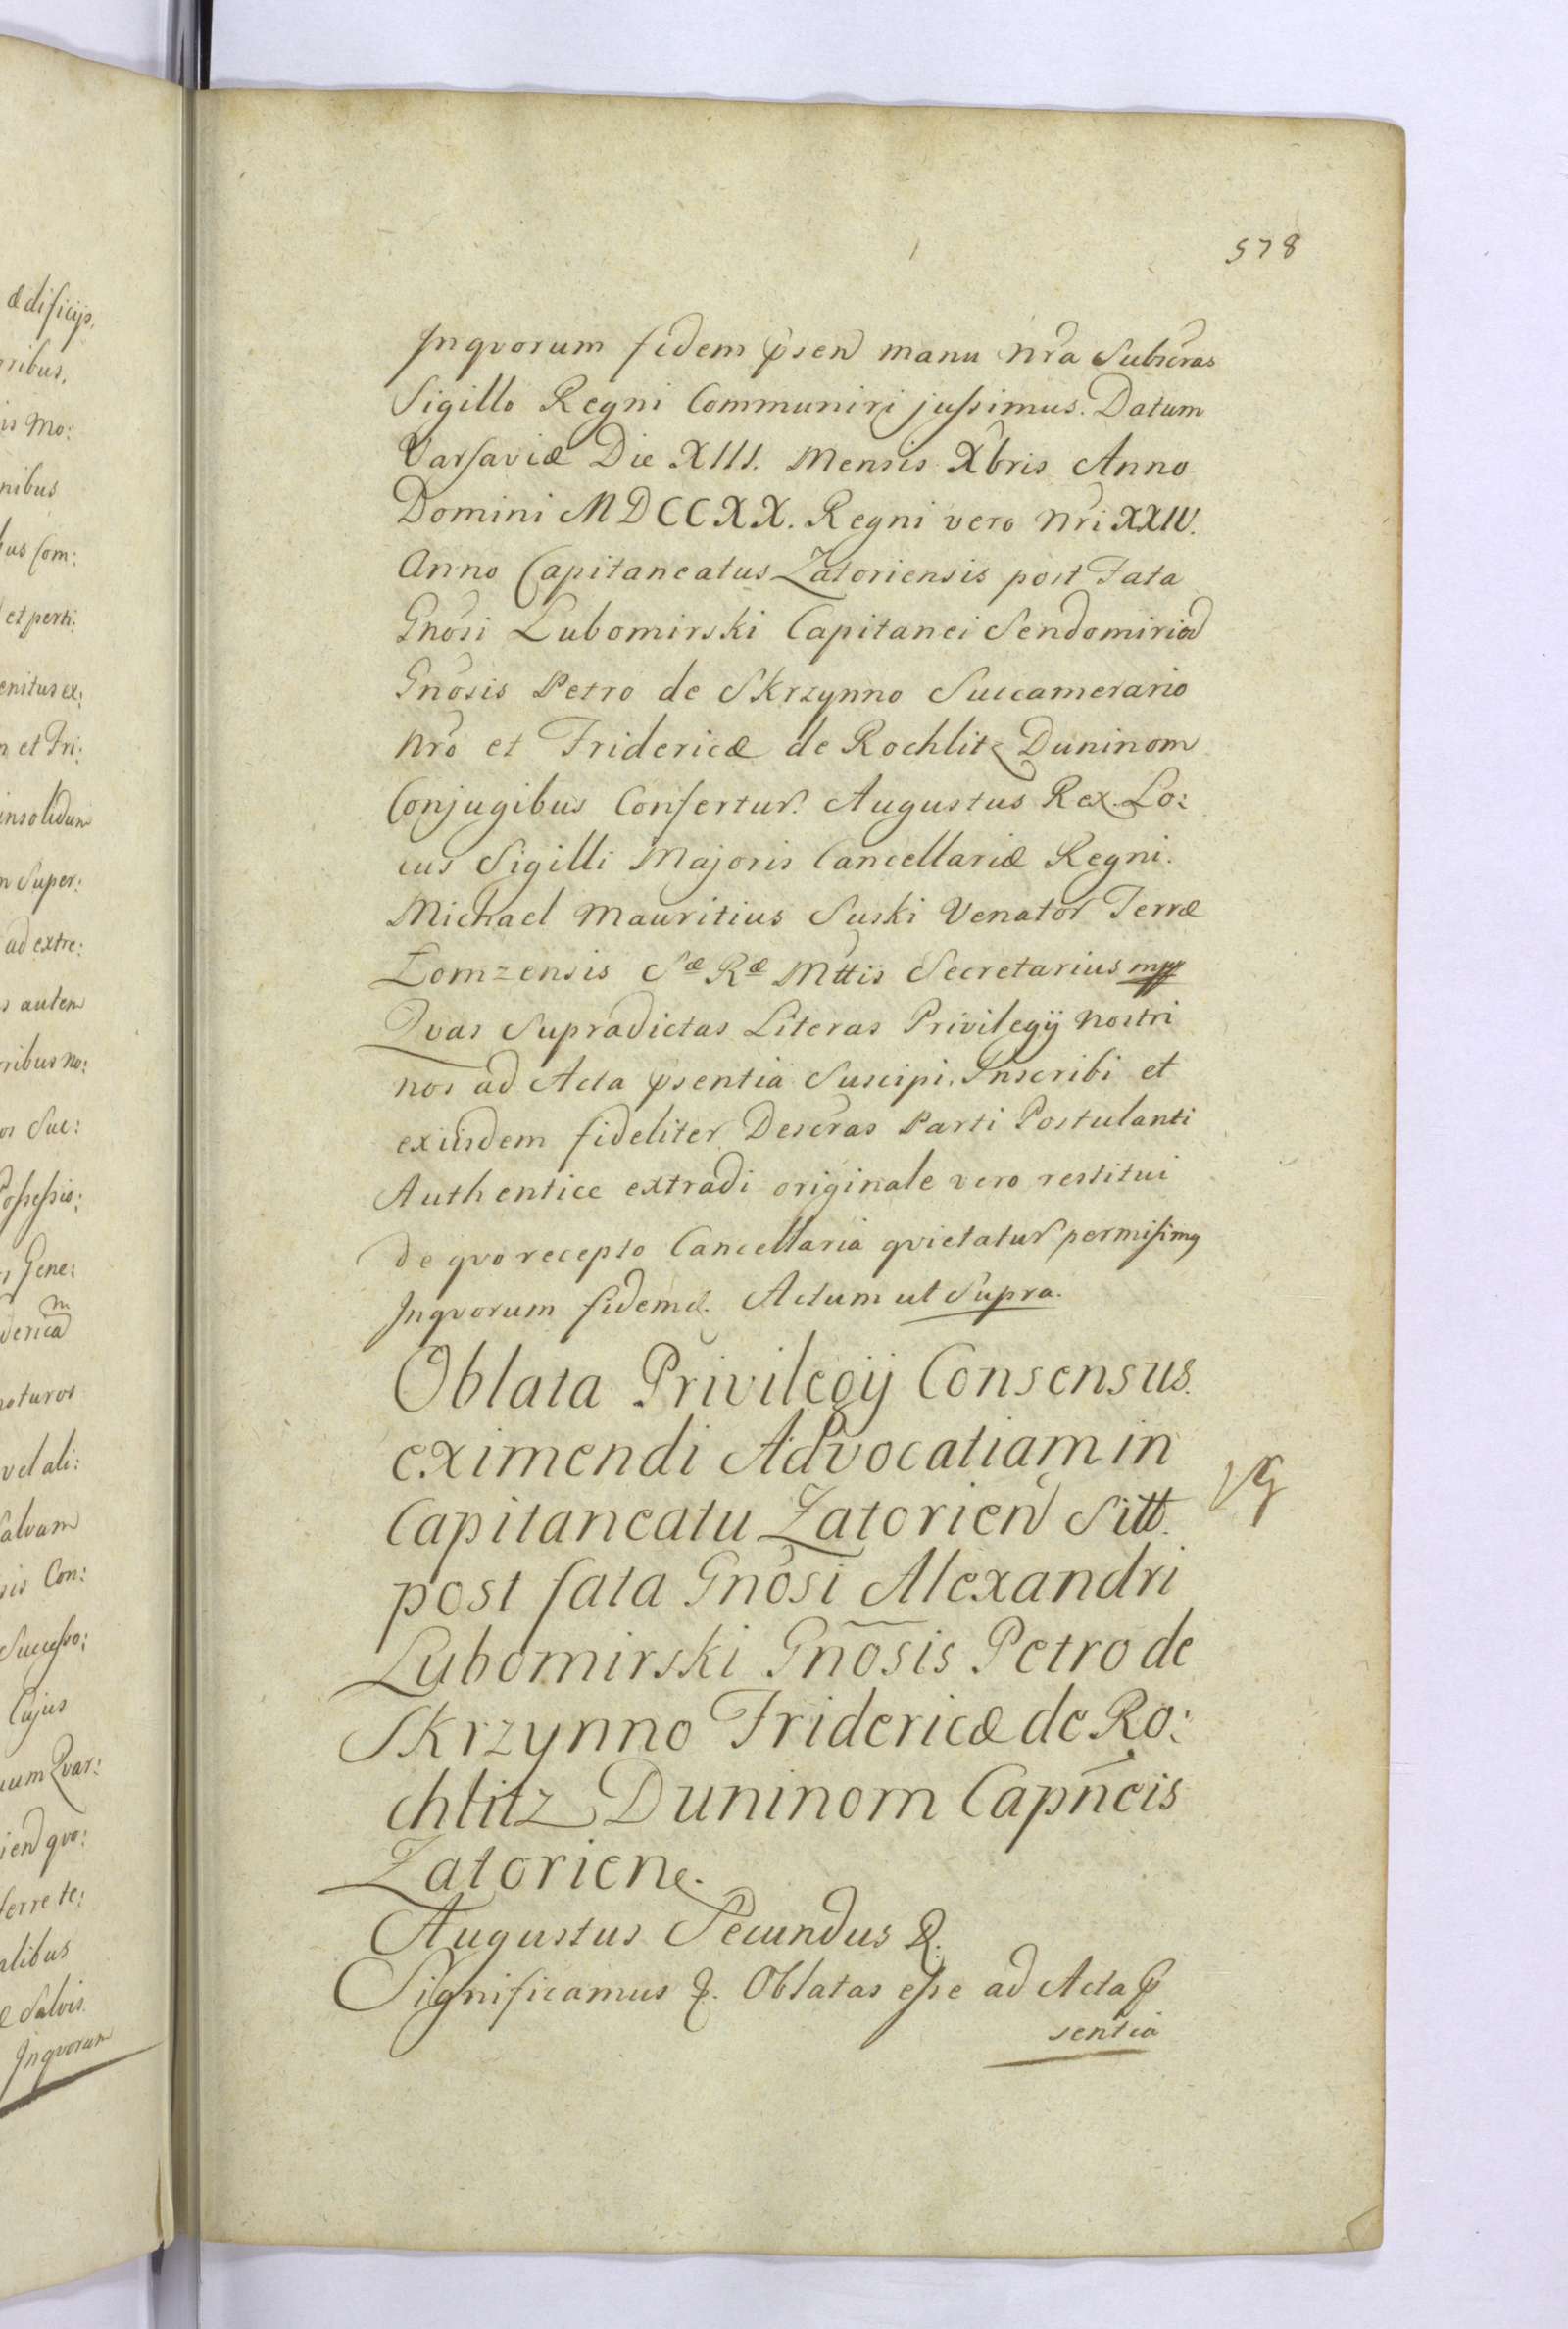 578
Inqvorum fidem psen manu nra Subscras
Sigillo Regni Communiri jussimus. Datum
Varsaviæ Die XIII. Mensis Xbris Anno
Domini MDCCXX. Regni vero Nri XXIV.
Anno Capitaneatus Zatoriensis post Fata
Gnosi Lubomirski Capitanei Sendomirien
Gnosis Petro de Skrzynno Succamerario
Nro et Fridericæ de Rochlitz Duninom
Conjugibus Confertur. Augustus Rex. Lo:
cus Sigilli Majoris Cancellariæ Regni.
Michael Mauritius Suski Venator Terræ
Łomzensis Sæ Ræ Mttis Secretarius mpp
Qvas Supradictas Literas Privilegij nostri
nos ad Acta psentia Suscipi, Inscribi et
exiisdem fideliter Descras Parti Postulanti
Authentice extradi originale vero restitui
de qvo recepto Cancellaria qvietatur permisimg
Inqvorum fidem &. Actum ut Supra.
Oblata Privilegij Consensus
eximendi Advocatiam in
Capitaneatu Zatorien Sitt.
post fata Gnosi Alexandri
Lubomirski Gnosis Petro de
Skrzynno Fridericæ de Ro:
chlitz Duninom Capneis
Zatorien.
Augustus Secundus &.
Significamus &. Oblatas esse ad Acta p
sentia
ædificijs,
is Mo:
nibus
Com:
et perti:
enitus ex:
et Fri:
insolidum
Super:
ad extre:
autem
ribus no:
Suc:
Possessio:
Gene:
vel ali:
salvam
Con:
Successo:
Cujus
Qvar:
qvo:
ferre te:
alibus
Salvis
Inqvorum